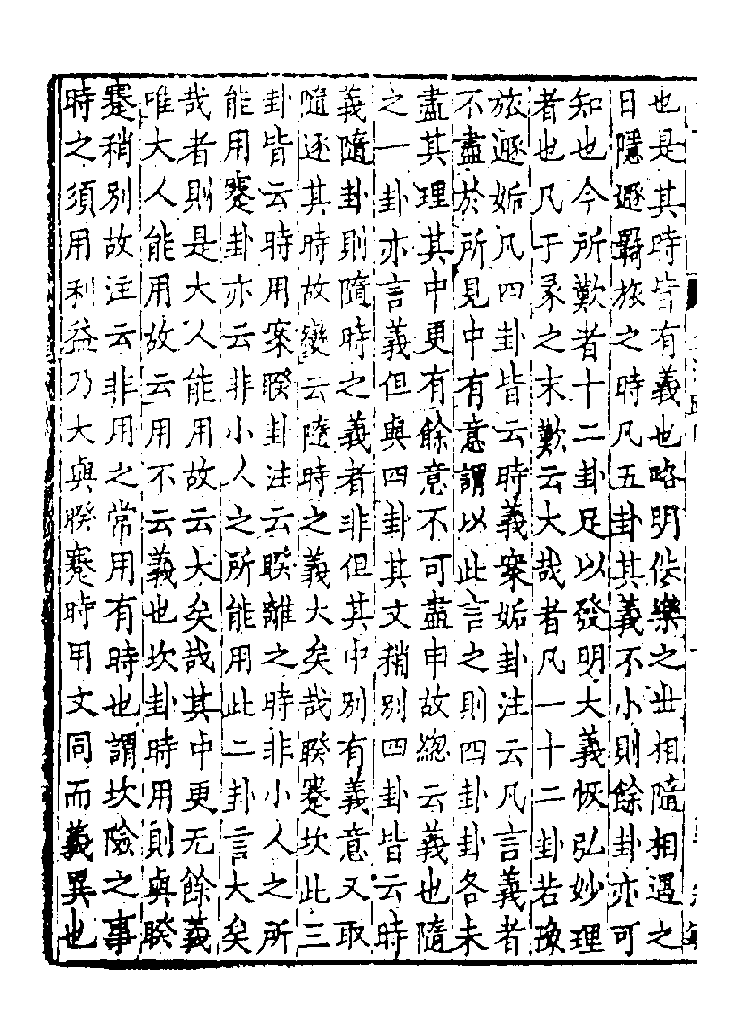 也是其時皆有義也略明佚樂之世相隨相遇之
日隱遯羇旅之時凡五卦其義不小則餘卦亦可
知也今所歎者十二卦足以發明大義恢弘妙理
者也凡于彖之末歎云大哉者凡一十二卦若豫
旅遯姤凡四卦皆云時義案姤卦注云凡言義者
不盡於所見中有意謂以此言之則四卦卦各未
盡其理其中更有餘意不可盡申故緫云義也隨
之一卦亦言義但與四卦其文稍別四卦皆云時
義隨卦則隨時之義者非但其中別有義意又取
隨逐其時故變云隨時之義大矣哉睽蹇坎此三
卦皆云時用案睽卦注云睽離之時非小人之所
能用蹇卦亦云非小人之所能用此二卦言大矣
哉者則是大人能用故云大矣哉其中更无餘義
唯大人能用故云用不云義也坎卦時用則與睽
蹇稍別故注云非用之常用有時也謂坎險之事
時之須用利益乃大與睽蹇時用文同而義異也